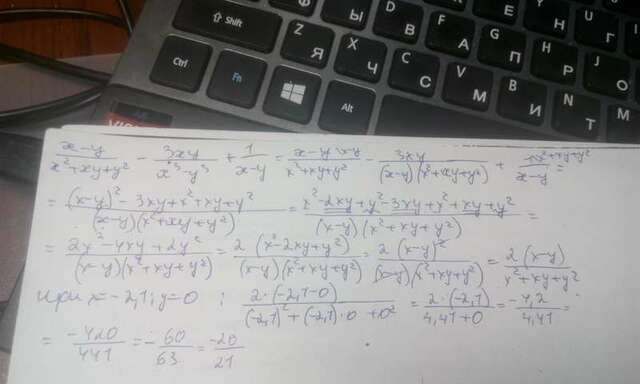 Shift Ф Ы В А П Р О И Г
Z Я X Ч C С V М B И N Т
Ctrl Fn Alt
x-y/(x²+xy+y²) - 3xy/(x³-y³) + 1/(x-y) = (x-y \x-y)/(x²+xy+y²) - 3xy/((x-y)(x²+xy+y²)) + (1 \x²+xy+y²)/(x-y) =
= ((x-y)² - 3xy + x² + xy + y²)/((x-y)(x²+xy+y²)) = (x² - 2xy + y² - 3xy + x² + xy + y²)/((x-y)(x²+xy+y²)) =
= (2x² - 4xy + 2y²)/((x-y)(x²+xy+y²)) = 2(x²-2xy+y²)/((x-y)(x²+xy+y²)) = 2(x-y)²/((x-y)(x²+xy+y²)) = 2(x-y)/(x²+xy+y²)
при x=-2,1; y=0 : 2·(-2,1-0)/((-2,1)²+(-2,1)·0+0²) = 2·(-2,1)/(4,41+0) = -4,2/4,41 =
= -420/441 = -60/63 = -20/21